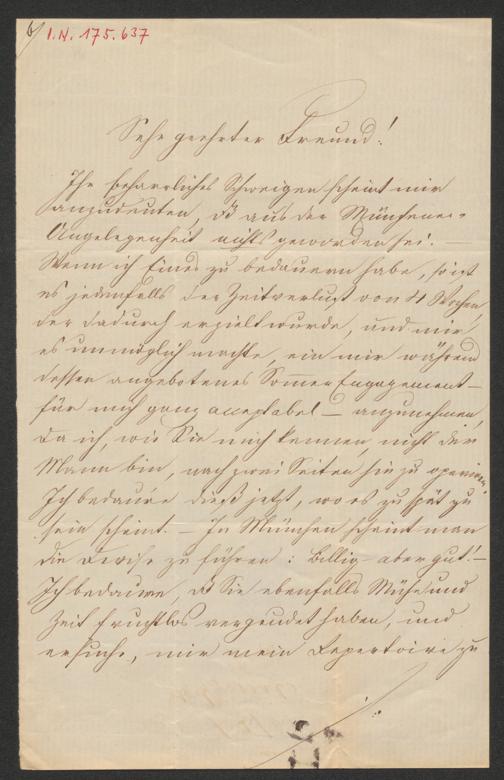 I.N. 175.637
Sehr geehrter Freund!
Ihr beharrliches Schweigen scheint mir
anzudeuten, dß aus der Münchener-
Angelegenheit nichts geworden sei. —
Wenn ich Eines zu bedauern habe, so ist
es jedenfalls der Zeitverlust von 4 Wochen,
der dadurch erzielt wurde, und mir
es unmöglich machte, ein mir während
dessen angebotenes Sommer Engagement —
für mich ganz acceptabel — anzunehmen,
da ich, wie Sie mich kennen, nicht der
Mann bin, nach zwei Seiten hin zu operiren.
Ich bedaure dieß jetzt, wo es zu spät zu
sein scheint. — In München scheint man
die Devise zu führen: Billig – aber gut! —
Ich bedaure, dß Sie ebenfalls Mühe und
Zeit fruchtlos vergeudet haben, und
ersuche, mir mein Repertoire zu